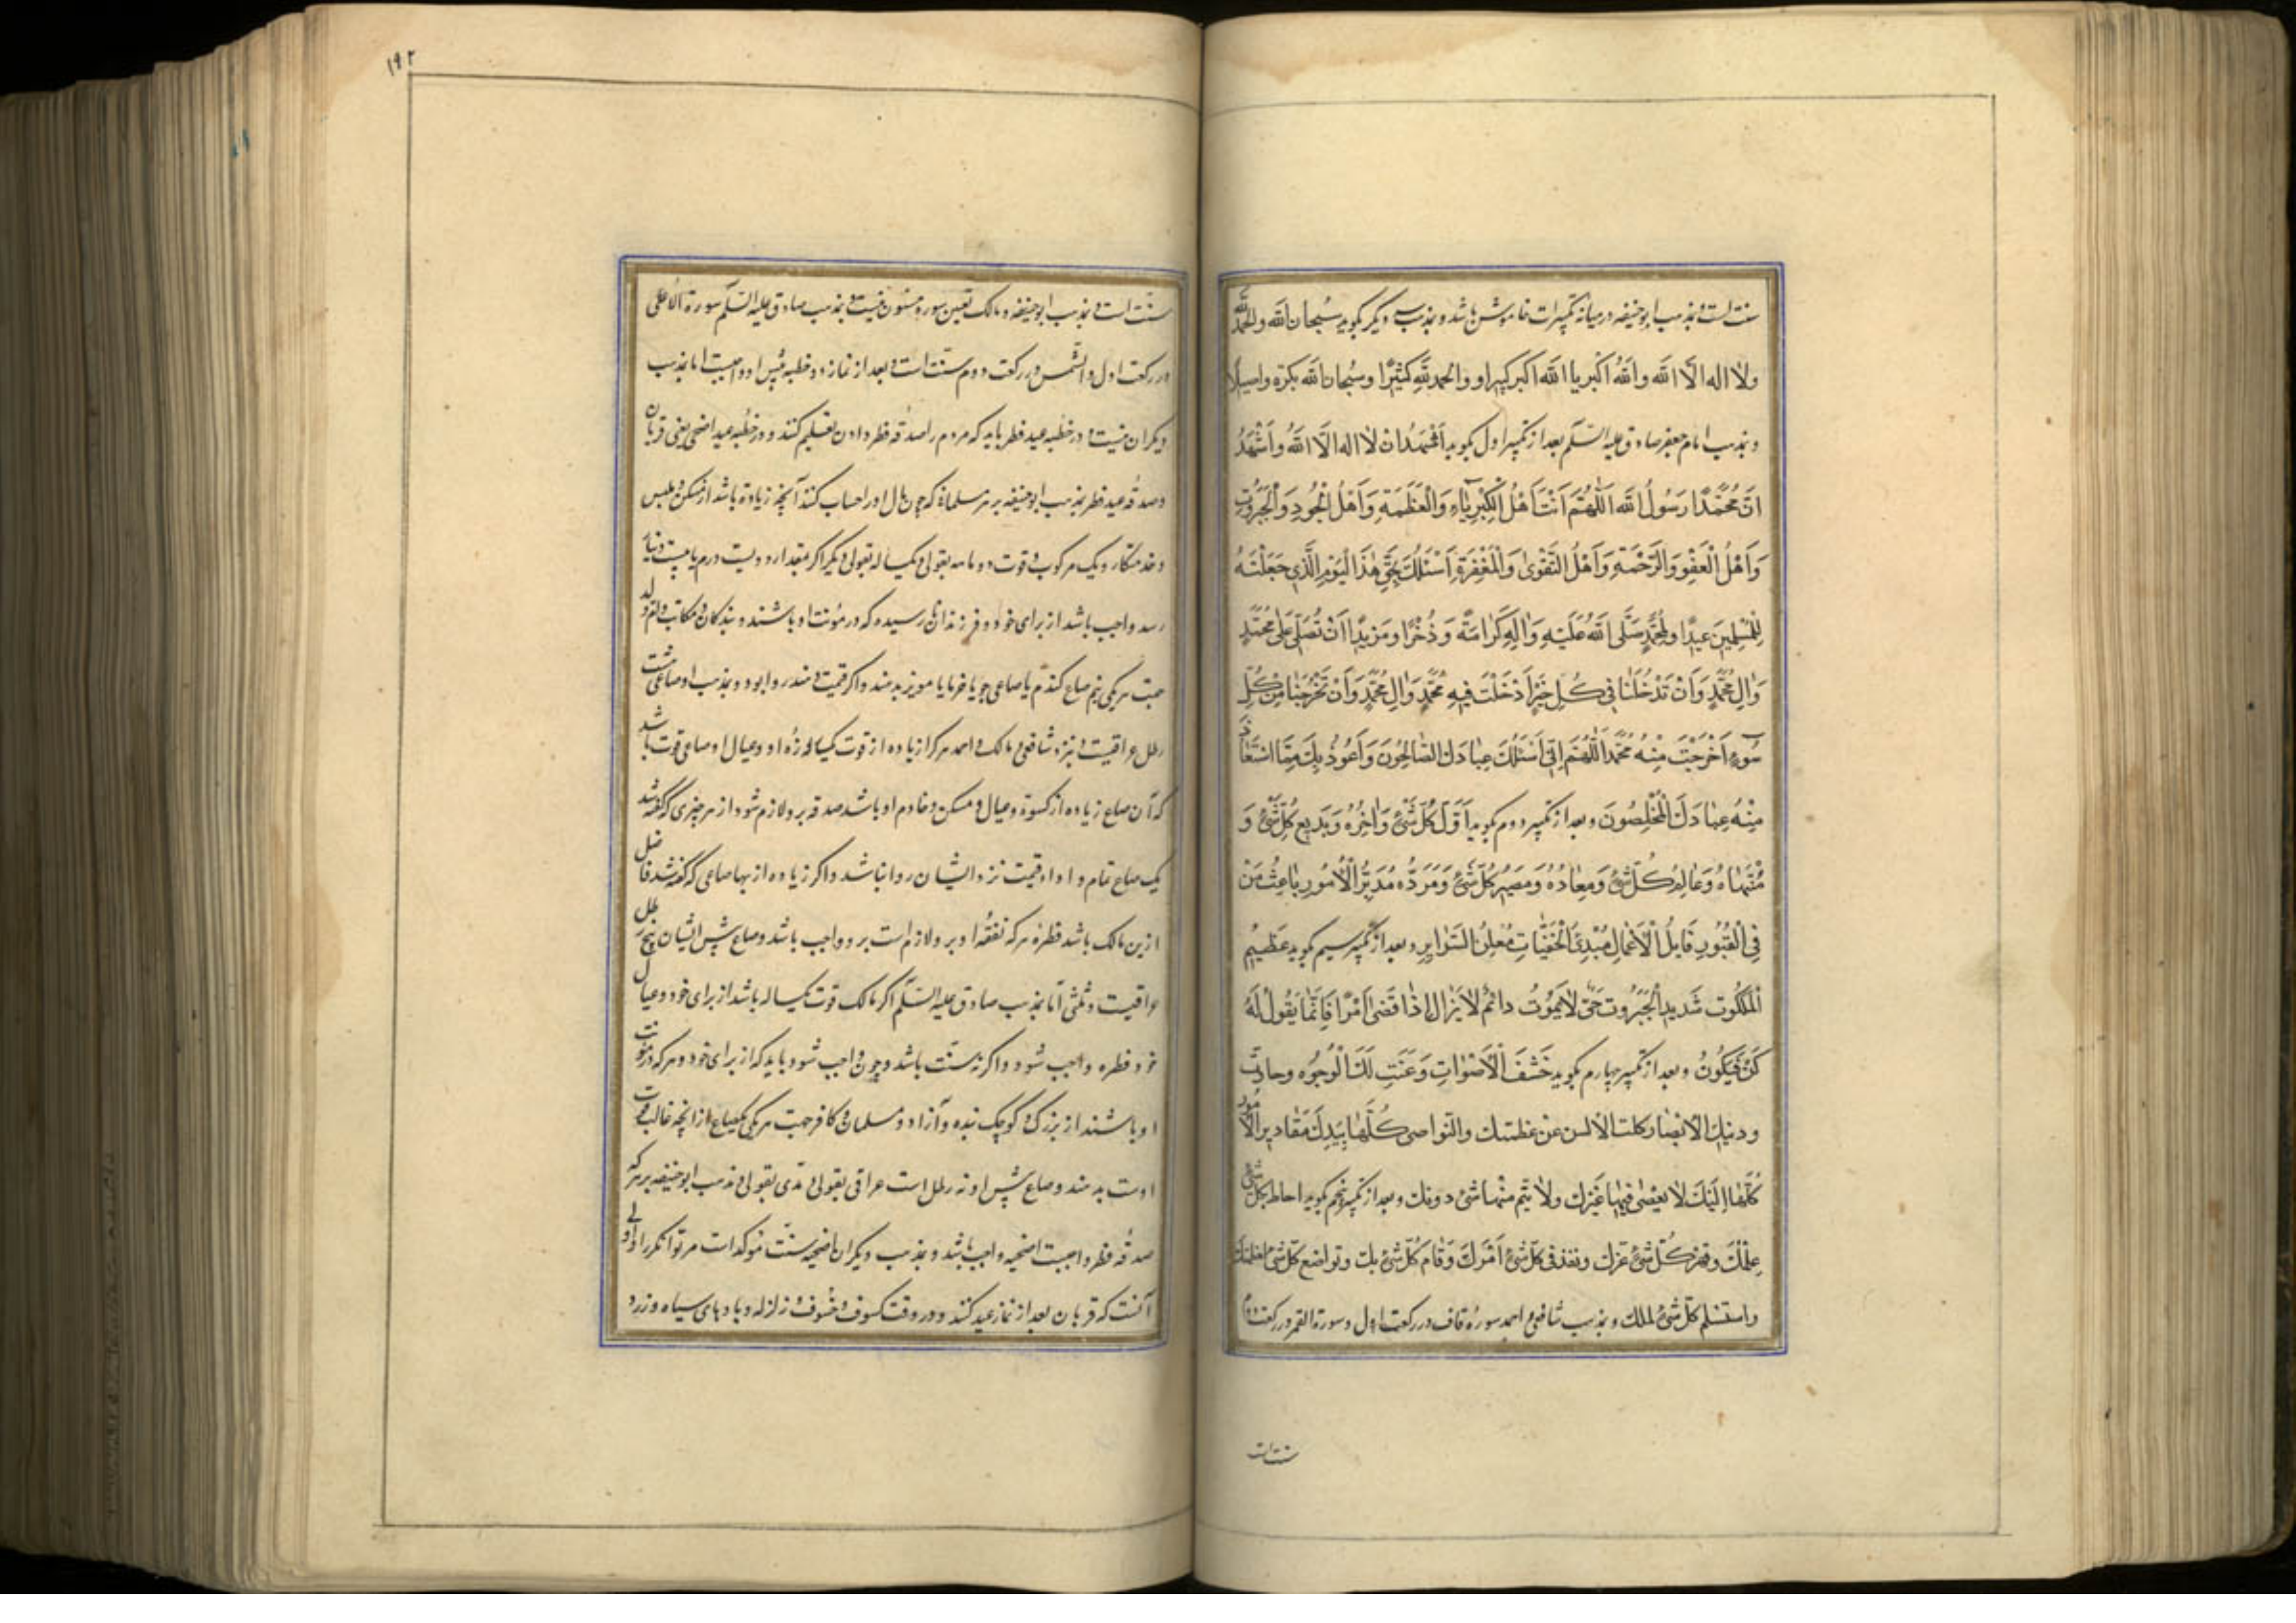 سنت است و بمذهب ابو حنیفه در میانه تکبیرات خاموش باشد و بمذهب دیگر بگوید سُبحان الله والحمدلله
ولا اله الّا الله والله اکبر یا الله اکبر کبیرا و والحمد لله کثیرًا وسُبحان الله بکرة واصیلا
و بمذهب امام جعفر صادق علیه السّلم بعد از تکبیر اول بگوید اَشْهَدُ ان لا اله الّا اللهُ واَشْهَدُ
انّ مُحَمَّدًا رَسُولُ الله اَللّٰهُمَّ اَنْتَ اَهْلُ الْکِبْرِیٰاءِ وَالْعَظَمَةِ وَاَهْلُ الْجُودِ وَالْجَبَرُوتِ
وَاَهْلُ الْعَفْوِ وَالرَّحْمَةِ وَاَهْلُ التَّقْوٰی وَالْمَغْفِرَةِ اَسْئَلُكَ بِحَقِّ هٰذَا الْیَوْمِ الَّذِی جَعَلْتَهُ
لِلْمُسْلِمِینَ عیدًا ولمُحَمَّدٍ صَلَّی اللهُ عَلَیْهِ وَاٰلِهِ کَرٰامَةً وَذُخْرًا ومَزیدًا اَنْ تُصَلِّیَ عَلیٰ مُحَمَّدٍ
وَاٰلِ مُحَمَّدٍ وَاَنْ تَدْخُلَنٰا فی کُلِّ خَیْرٍ اَدْخَلْتَ فیهِ مُحَمَّدٍ وَاٰلِ مُحَمَّدٍ وَاَنْ تَخْرُجَنٰا مِنْ کُلِّ
سُوءٍ اَخْرَجْتَ مِنْهُ مُحَمَّدًا اَللّٰهُمَّ اِنّی اَسْئَلُكَ عِبٰادَكَ الصّٰالِحُونَ وَاَعُوذُ بِكَ مِمَّا اسْتَعٰاذَ
مِنْهُ عِبٰادَكَ الْمُخْلِصُونَ و بعد از تکبیر دوم بگوید اَوَّلَ کُلِّ شَیْءٍ وَاٰخِرُهُ وَبَدیعِ کُلِّ شَیْءٍ وَ
مُنْتَهٰاهُ وَعٰالِمُ کُلِّ شَیْءٍ وَمعٰادُهُ وَمَصیرُ کُلِّ شَیْءٍ وَمَرَدُّه مُدَبِّرُ الْاُمُورِ بٰاعِثُ مَنْ
فِی الْقُبُورِ قٰابِلُ الْاَعْمٰالِ مُبْدِئُ الْخَفِیّٰاتِ مُعْلِنُ السَّرٰایِرِ و بعد از تکبیر سیم بگوید عَظیمُ
الْمَلَکُوتِ شَدیدُ الْجَبَرُوتِ حَیّ لاٰیَمُوتُ دائم لاٰیَزٰال اِذٰا قَضیٰ اَمْرًا فَاِنَّمٰا یَقُولُ لَهُ
کُنْ فَیَکُونُ و بعد از تکبیر چهارم بگوید خَشَعَ الْاَصْوٰاتِ وَعَنَتِ لَكَ الْوُجُوه وحارت
ودنیك الْابْصٰار کلت الالسن عن عظمتك والنواصی کُلّهٰا بِیَدِكَ مَقٰادیرِ الْاُمُور
کُلّهٰا اِلَیْكَ لٰا یقضٰی فیهٰا غَیْرك ولاٰ یتم منهٰا شیء دونك و بعد از تکبیر پنجم بگوید احاط بکل شیء
عِلْمُكَ وقهر کُلّ شیء عزك ونفذ فی کلّ شیء اَمْرُكَ وَقٰام کُلّ شیء بك وتواضع کلّ شیء لعظمتك
واستسلم کلّ شیء لملکك و بمذهب شافعی و احمد سورۀ قاف در رکعت اول و سورة القمر در رکعت دوم
سنت است
۱۹۲
سنّت است و بمذهب ابو حنیفه و مالک تعیین سوره مسنون نیست و بمذهب صادق علیه السّلم سورة الاعلی
در رکعت اول و الشّمس در رکعت دوم سنّت است و بعد از نماز دو خطبه پیش او واجبست اما بمذهب
دیگران نیست و در خطبه عید فطر باید که مردم را صدقه فطر دادن تعلیم کند و در خطبه عید اضحی یعنی قربان
و صدقه عید فطر بمذهب ابو حنیفه بر هر مسلمانی که چون مال او را حساب کنند آنچه زیاده باشد از مسکن و ملبس
و خدمتکار و یک مرکوب و قوت دو ماهه بقولی و یکساله بقولی دیگر اگر مقدار دویست درم یا بیست دینار
رسد واجب باشد از برای خود و فرزندان نارسیده که در مؤنت او باشند و بندکان و مکاتب و ام ولد
جهت هر یکی نیم صاع کندم یا صاعی جو یا خرما یا مویز بدهند و اگر قیمت دهند روا بود و بمذهب او صاعی هشت
رطل عراقیست و نزد شافعی و مالک و احمد هر که را زیاده از قوت یکساله زه او و عیال او صاعی قوت باشد
که آن صاع زیاده از کسوة و عیال و مسکن و خادم او باشد صدقه برو لازم شود از هر چیزی که گفته شد
یک صاع تمام و ادای قیمت نزد ایشان روا نباشد و اگر زیاده ازینها صاعی که گفته شد فاضل
ازین مالک باشد فطره هر که نفقه او برو لازم است برو واجب باشد و صاع پیش ایشان پنج رطل
عراقیست و ثلثی امّا بمذهب صادق علیه السّلم اگر مالک قوت یکساله باشد از برای خود و عیال
خود فطره واجب شود و اگر نه سنّت باشد و چون واجب شود باید که از برای خود و هر که در مؤنت
او باشند از بزرک و کوچک بنده و آزاد و مسلمان و کافر جهت هر یکی یکصاع از آنچه غالب قوت
اوست بدهند و صاع پیش او نه رطل است عراقی بقولی و مدی بقولی و مذهب ابو حنیفه بر هر که
صدقه فطر واجبست اضحیه واجب باشد و بمذهب دیگران اضحیه سنّت مؤکد است هر توانکر را و اولی
آنست که قربان بعد از نماز عید کنند و در وقت کسوف و خسوف و زلزله و بادهای سیاه و زرد